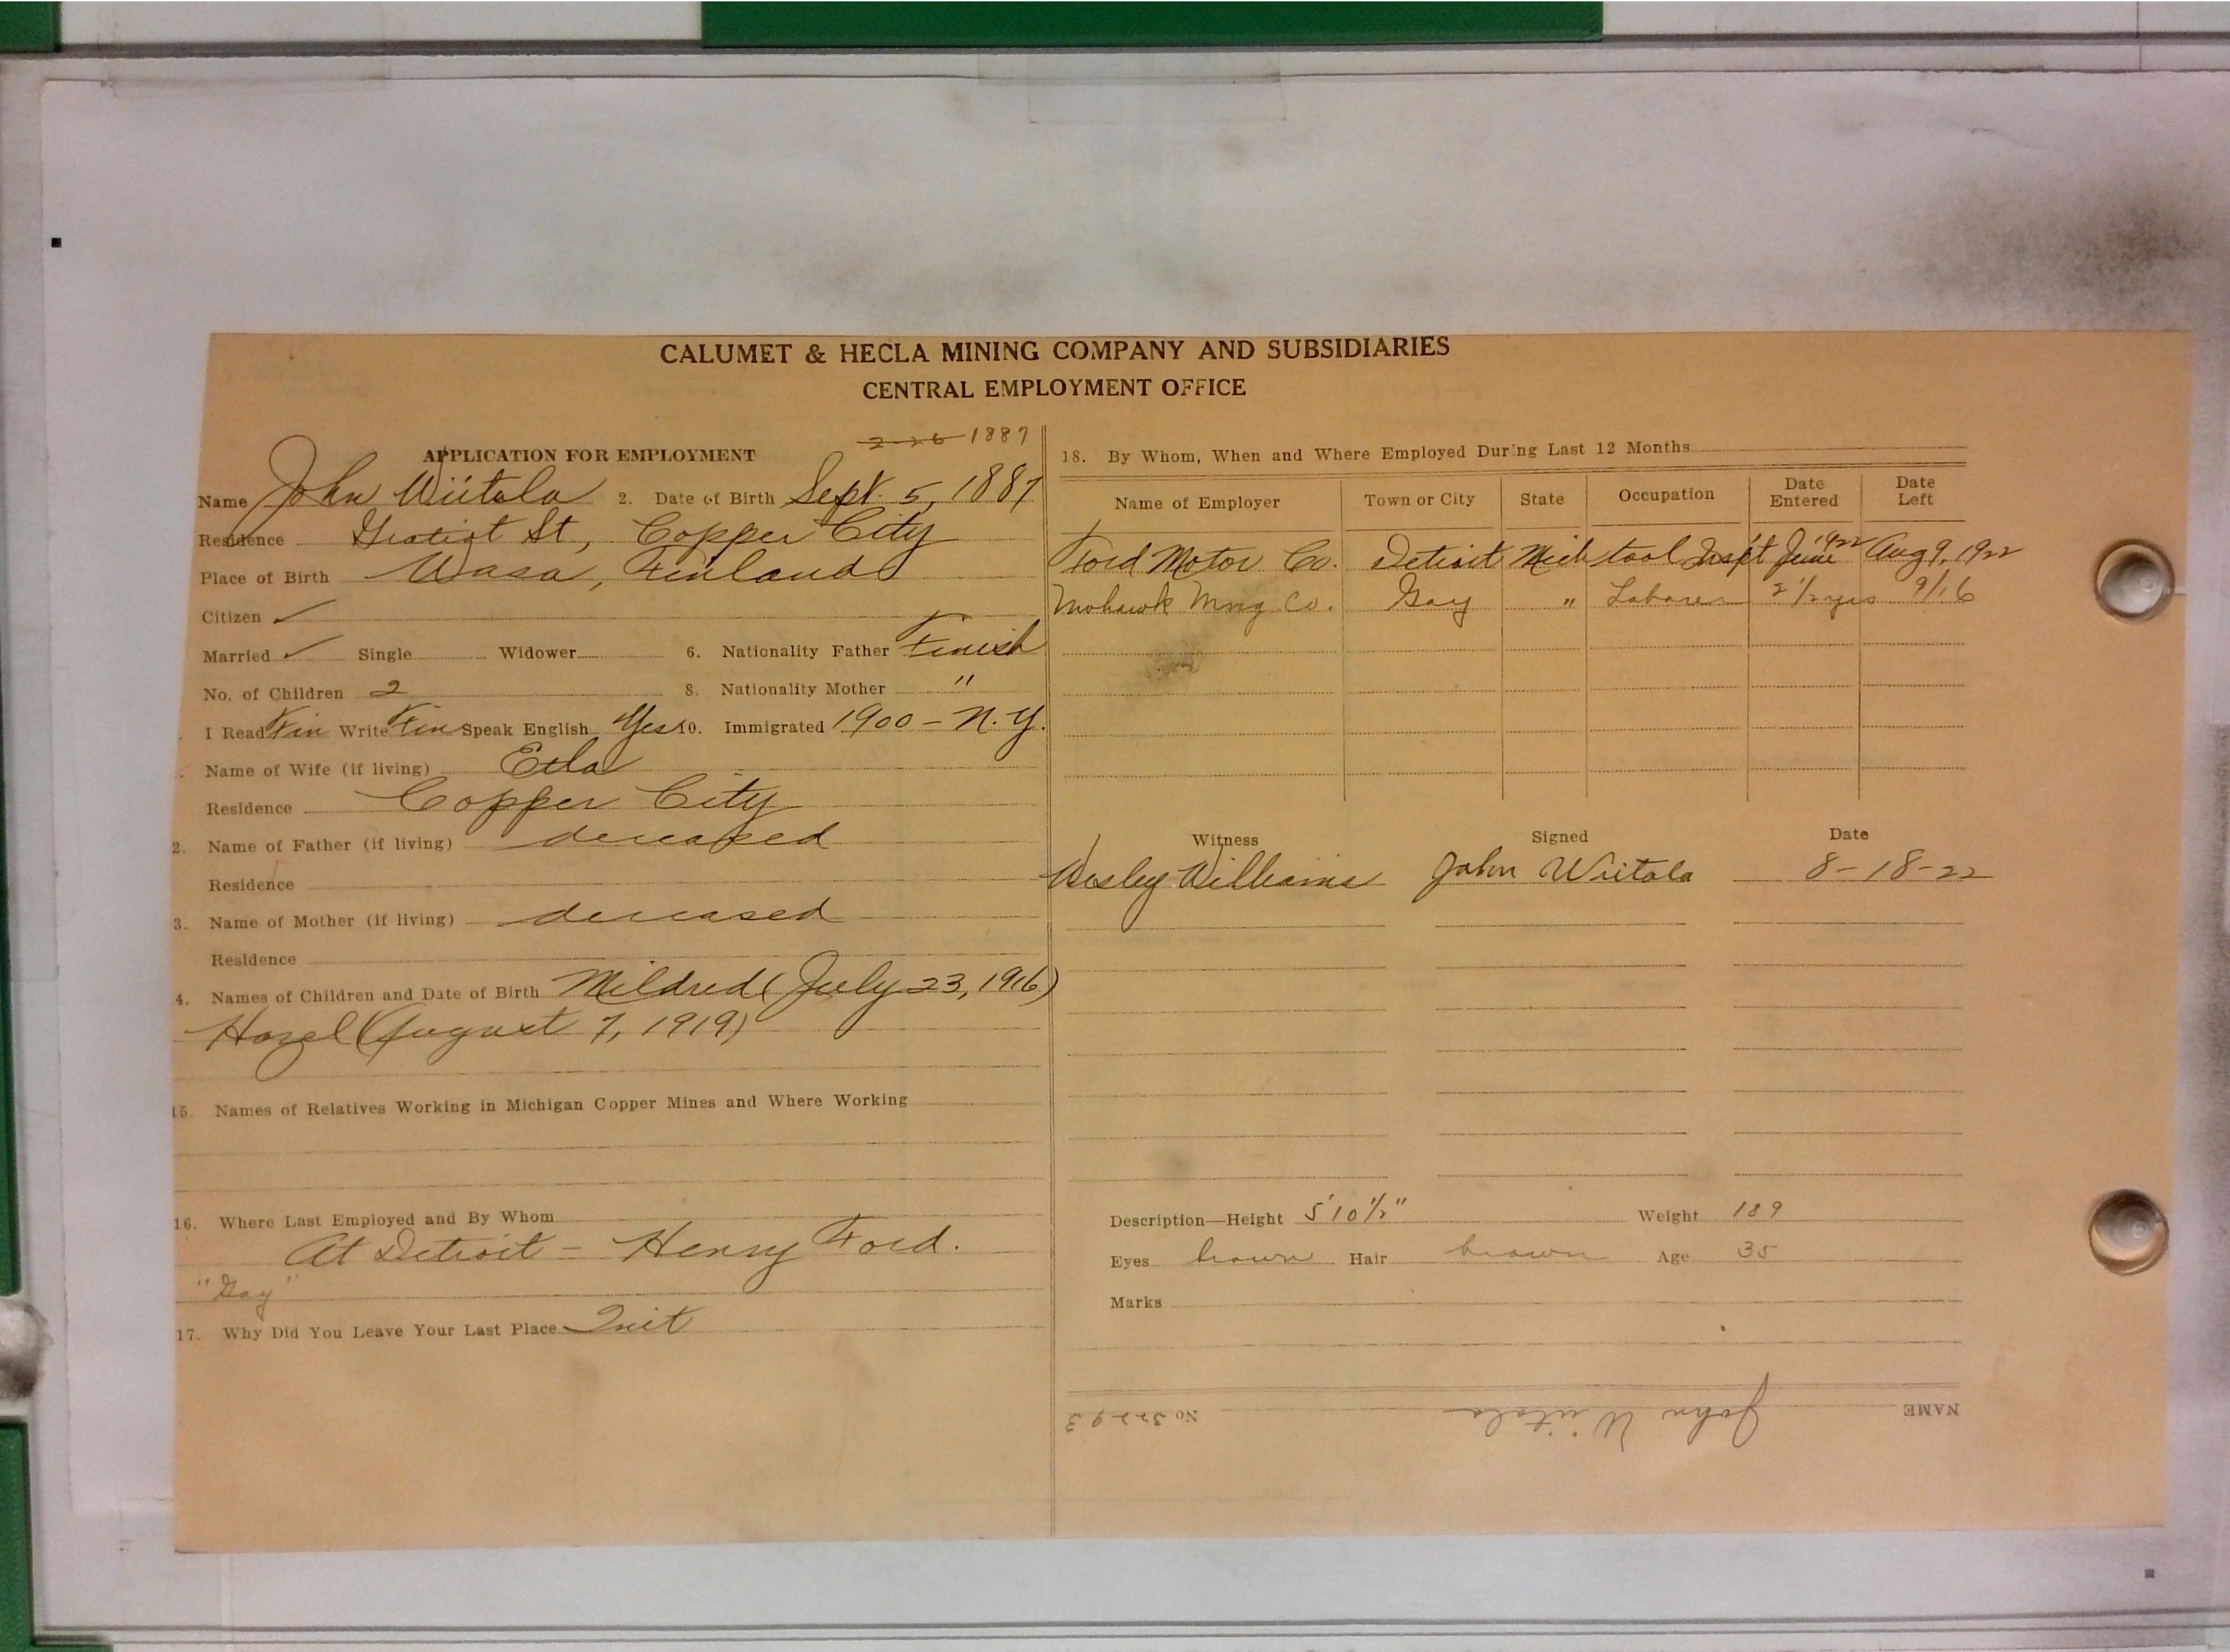 CALUMET & HECLA MINING COMPANY AND SUBSIDIARIES
CENTRAL EMPLOYMENT OFFICE
2-26 1887
APPLICATION FOR EMPLOYMENT
Name John Wiitala 2. Date of Birth Sept. 5, 1887
Residence Gratiot St, Copper City
Place of Birth Wasa, Finland
Citizen ✓
Married ✓ Single Widower 6. Nationality Father Finish
No. of Children 2 8. Nationality Mother "
I Read Fin Write Fin Speak English Yes 10. Immigrated 1900 - N.Y.
Name of Wife (if living)
Residence Copper City
2. Name of Father (if living) deceased
Residence
3. Name of Mother (if living) deceased
Residence
4. Names of Children and Date of Birth Mildred (July 23, 1916)
Hazel (August 7, 1919)
15. Names of Relatives Working in Michigan Copper Mines and Where Working
16. Where Last Employed and By Whom
At Detroit - Henry Ford.
"Gay"
17. Why Did You Leave Your Last Place Quit
18. By Whom, When and Where Employed During Last 12 Months
Name of Employer Town or City State Occupation Date Entered Date Left
Ford Motor Co. Detroit Mich tool Insp't June 1922 Aug 9, 1922
Mohawk Mng Co. Gay " Laborer 2 1/2 yrs 9/16
Witness Signed Date
Wesley Williams John Wiitala 8-18-22
Description—Height 5'10 1/2" Weight 189
Eyes brown Hair brown Age 35
Marks
NAME John Wiitala No 32293